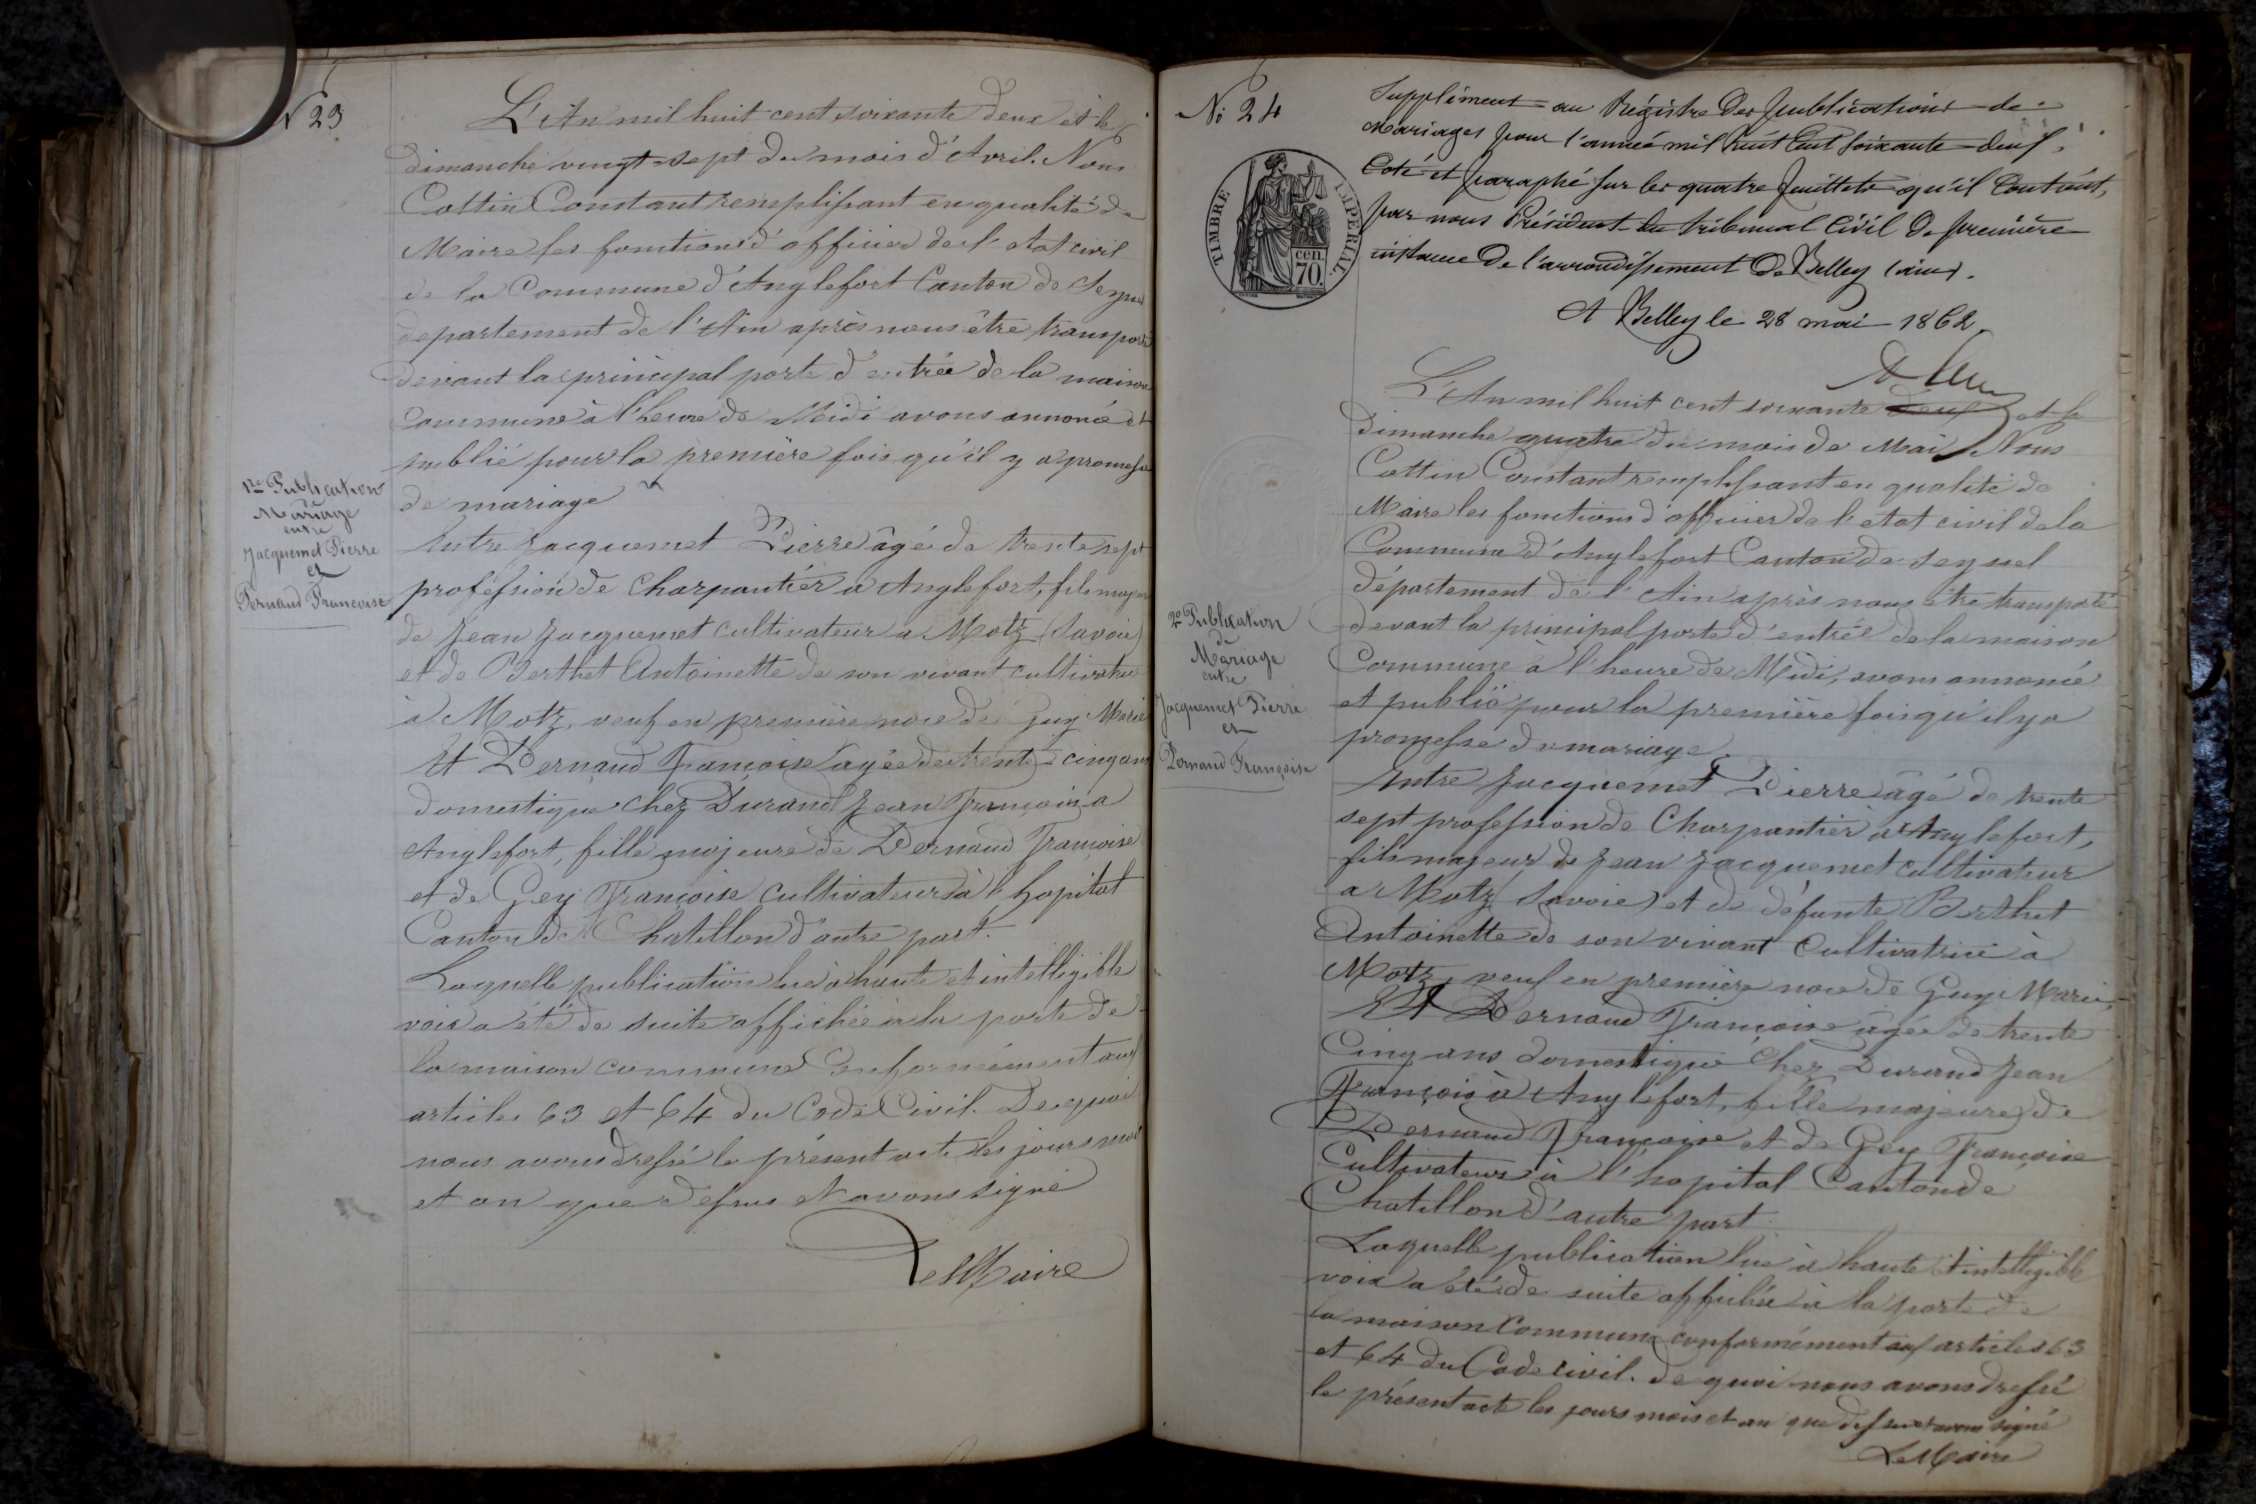 N 23
L'An mil huit cent soixante deux et le
dimanche vingt-sept du mois d'Avril. Nous
Cottin Constant remplissant en qualité de
Maire les fonctions d'officier de l'etat civil
de la Commune d'Anglefort Canton de Seyssel
departement de l'Ain après nous être transporté
devant la principal porte d'entrée de la maison
commune à l'heure de Midi avons annoncé et
publié pour la première fois qu'il y a promesse
de mariage
1re Publication
Mariage
entre
Jacquemet Pierre
et
Pernaud Françoise
Entre Jacquemet Pierre âgé de trente sept
profession de Charpantier a Anglefort, fils majeur
de Jean Jacquemet cultivateur a Motz (Savoie)
et de Berthet Antoinette de son vivant cultivatrice
à Motz, veuf en première noce de Guy Marie
Et Pernaud Françoise agée de trente cinq ans
domestique chez Durand Jean François a
Anglefort, fille majeure de Pernaud Françoise
et de Gey Françoise cultivateurs à l'hopital
Canton de Chatillon d'autre part.
Laquelle publication lue à haute et intelligible
voix a été de suite affichée à la porte de
la maison commune Conformément aux
articles 63 et 64 du Code Civil. De quoi
nous avons dressé le présent acte les jours mois
et an que dessus et avons signé
Le Maire
No 24
TIMBRE IMPERIAL
70 cen.
Supplément au Régistre des publications de
Mariages pour l'année mil huit cent soixante-deux,
Coté et paraphé sur les quatre feuillets qu'il contient,
par nous Président du tribunal Civil de première
instance de l'arrondissement de Belley (ain).
A Belley le 28 mai 1862.
L'An mil huit cent soixante deux et le
dimanche quatre du mois de Mai Nous
Cottin Constant remplissant en qualité de
Maire les fonctions d'officier de l'etat civil de la
Commune d'Anglefort Canton de Seyssel
département de l'Ain après nous être transporté
devant la principal porte d'entrée de la maison
Commune à l'heure de Midi, avons annoncé
et publié pour la première fois qu'il y a
promesse de mariage.
2e Publication
de
Mariage
entre
Jacquemet Pierre
et
Pernaud Françoise
Entre Jacquemet Pierre âgé de trente
sept profession de Charpantier a Anglefort,
fils majeur de Jean Jacquemet cultivateur
a Motz (Savoie) et de défunte Berthet
Antoinette de son vivant Cultivatrice à
Motz, veuf en première noce de Guy Marie,
Et Pernaud Françoise âgée de trente
Cinq ans domestique chez Durand Jean
François à Anglefort, fille majeure de
Pernaud Françoise et de Gey Françoise
Cultivateurs à l'hopital Canton de
Chatillon d'autre part
Laquelle publication lue à haute et intelligible
voix a été de suite affichée à la porte de
la maison Commune conformément aux articles 63
et 64 du Code civil. De quoi nous avons dressé
le présent acte les jours mois et an que dessus et avons signé
Le Maire